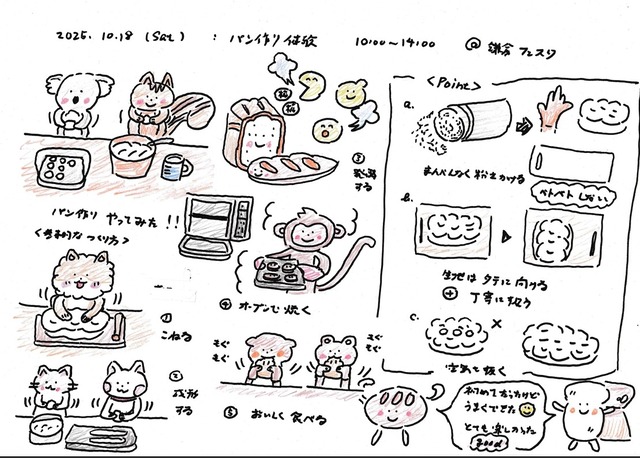 2025. 10.18 (Sat) : パン作り体験 10:00〜14:00 @鎌倉
パン作り やってみた!!
<基本的な つくり方>
① こねる
② 成形する
③ 発酵する
④ オーブンで焼く
もぐもぐ
もぐもぐ
⑤ おいしく 食べる
<Point>
a.
まんべんなく 粉をかける
ベトベト しない
b.
生地は タテに 向ける
⊕ 丁寧に扱う
c.
×
空気を 抜く
初めて だったけど
うまくできた
とても楽しかった
good